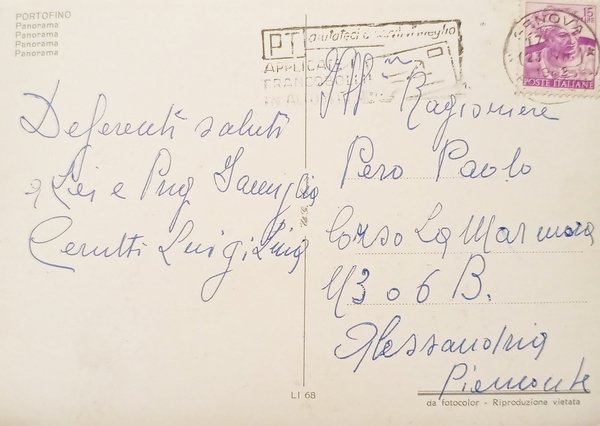 PORTOFINO
Panorama
Panorama
Panorama
Panorama
PT aiutateci a servirvi meglio
APPLICATE
FRANCOBOLLI
IN ALTO
GENOVA
15
LIRE
POSTE ITALIANE
Deferenti saluti
a Lei e Preg Famiglia
Cerutti Luigi Lina
Ragioniere
Pero Paolo
Corso La Marmora
N 3 o 6 B.
Alessandria
Piemonte
LI 68
da fotocolor - Riproduzione vietata